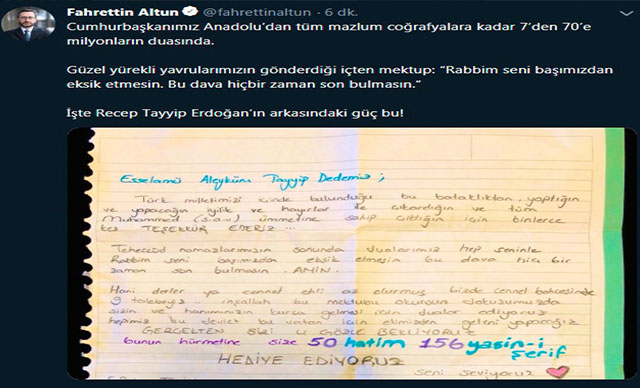 Fahrettin Altun @fahrettinaltun · 6 dk.
Cumhurbaşkanımız Anadolu’dan tüm mazlum coğrafyalara kadar 7’den 70’e
milyonların duasında.
Güzel yürekli yavrularımızın gönderdiği içten mektup: “Rabbim seni başımızdan
eksik etmesin. Bu dava hiçbir zaman son bulmasın.”
İşte Recep Tayyip Erdoğan’ın arkasındaki güç bu!
Esselamü Aleyküm Tayyip Dedemiz ;
Türk milletimizi içinde bulunduğu bu bataklıktan, yaptığın
ve yapacağın iyilik ve hayırlar ile çıkardığın ve tüm
Muhammed (s.a.v) ümmetine sahip çıktığın için binlerce
kez TEŞEKKÜR EDERİZ ...
Teheccüd namazlarımızın sonunda dualarımız hep seninle
Rabbim seni başımızdan eksik etmesin bu dava hiç bir
zaman son bulmasın. AMİN.
Hani derler ya cennet ehli az olurmuş bizde cennet bahçesinde
9 talebeyiz ... inşallah bu mektubu okursun dokuzumuzda
sizin ve hanımınızın kursa gelmesi için dualar ediyoruz
hepimiz bu devlet bu vatan için elimizden geleni yapacağız
GERÇEKTEN BİZİ 4 GÖZLE BEKLİYORUZ
bunun hürmetine size 50 hatim 156 yasin-i
şerif
HEDİYE EDİYORUZ
seni seviyoruz